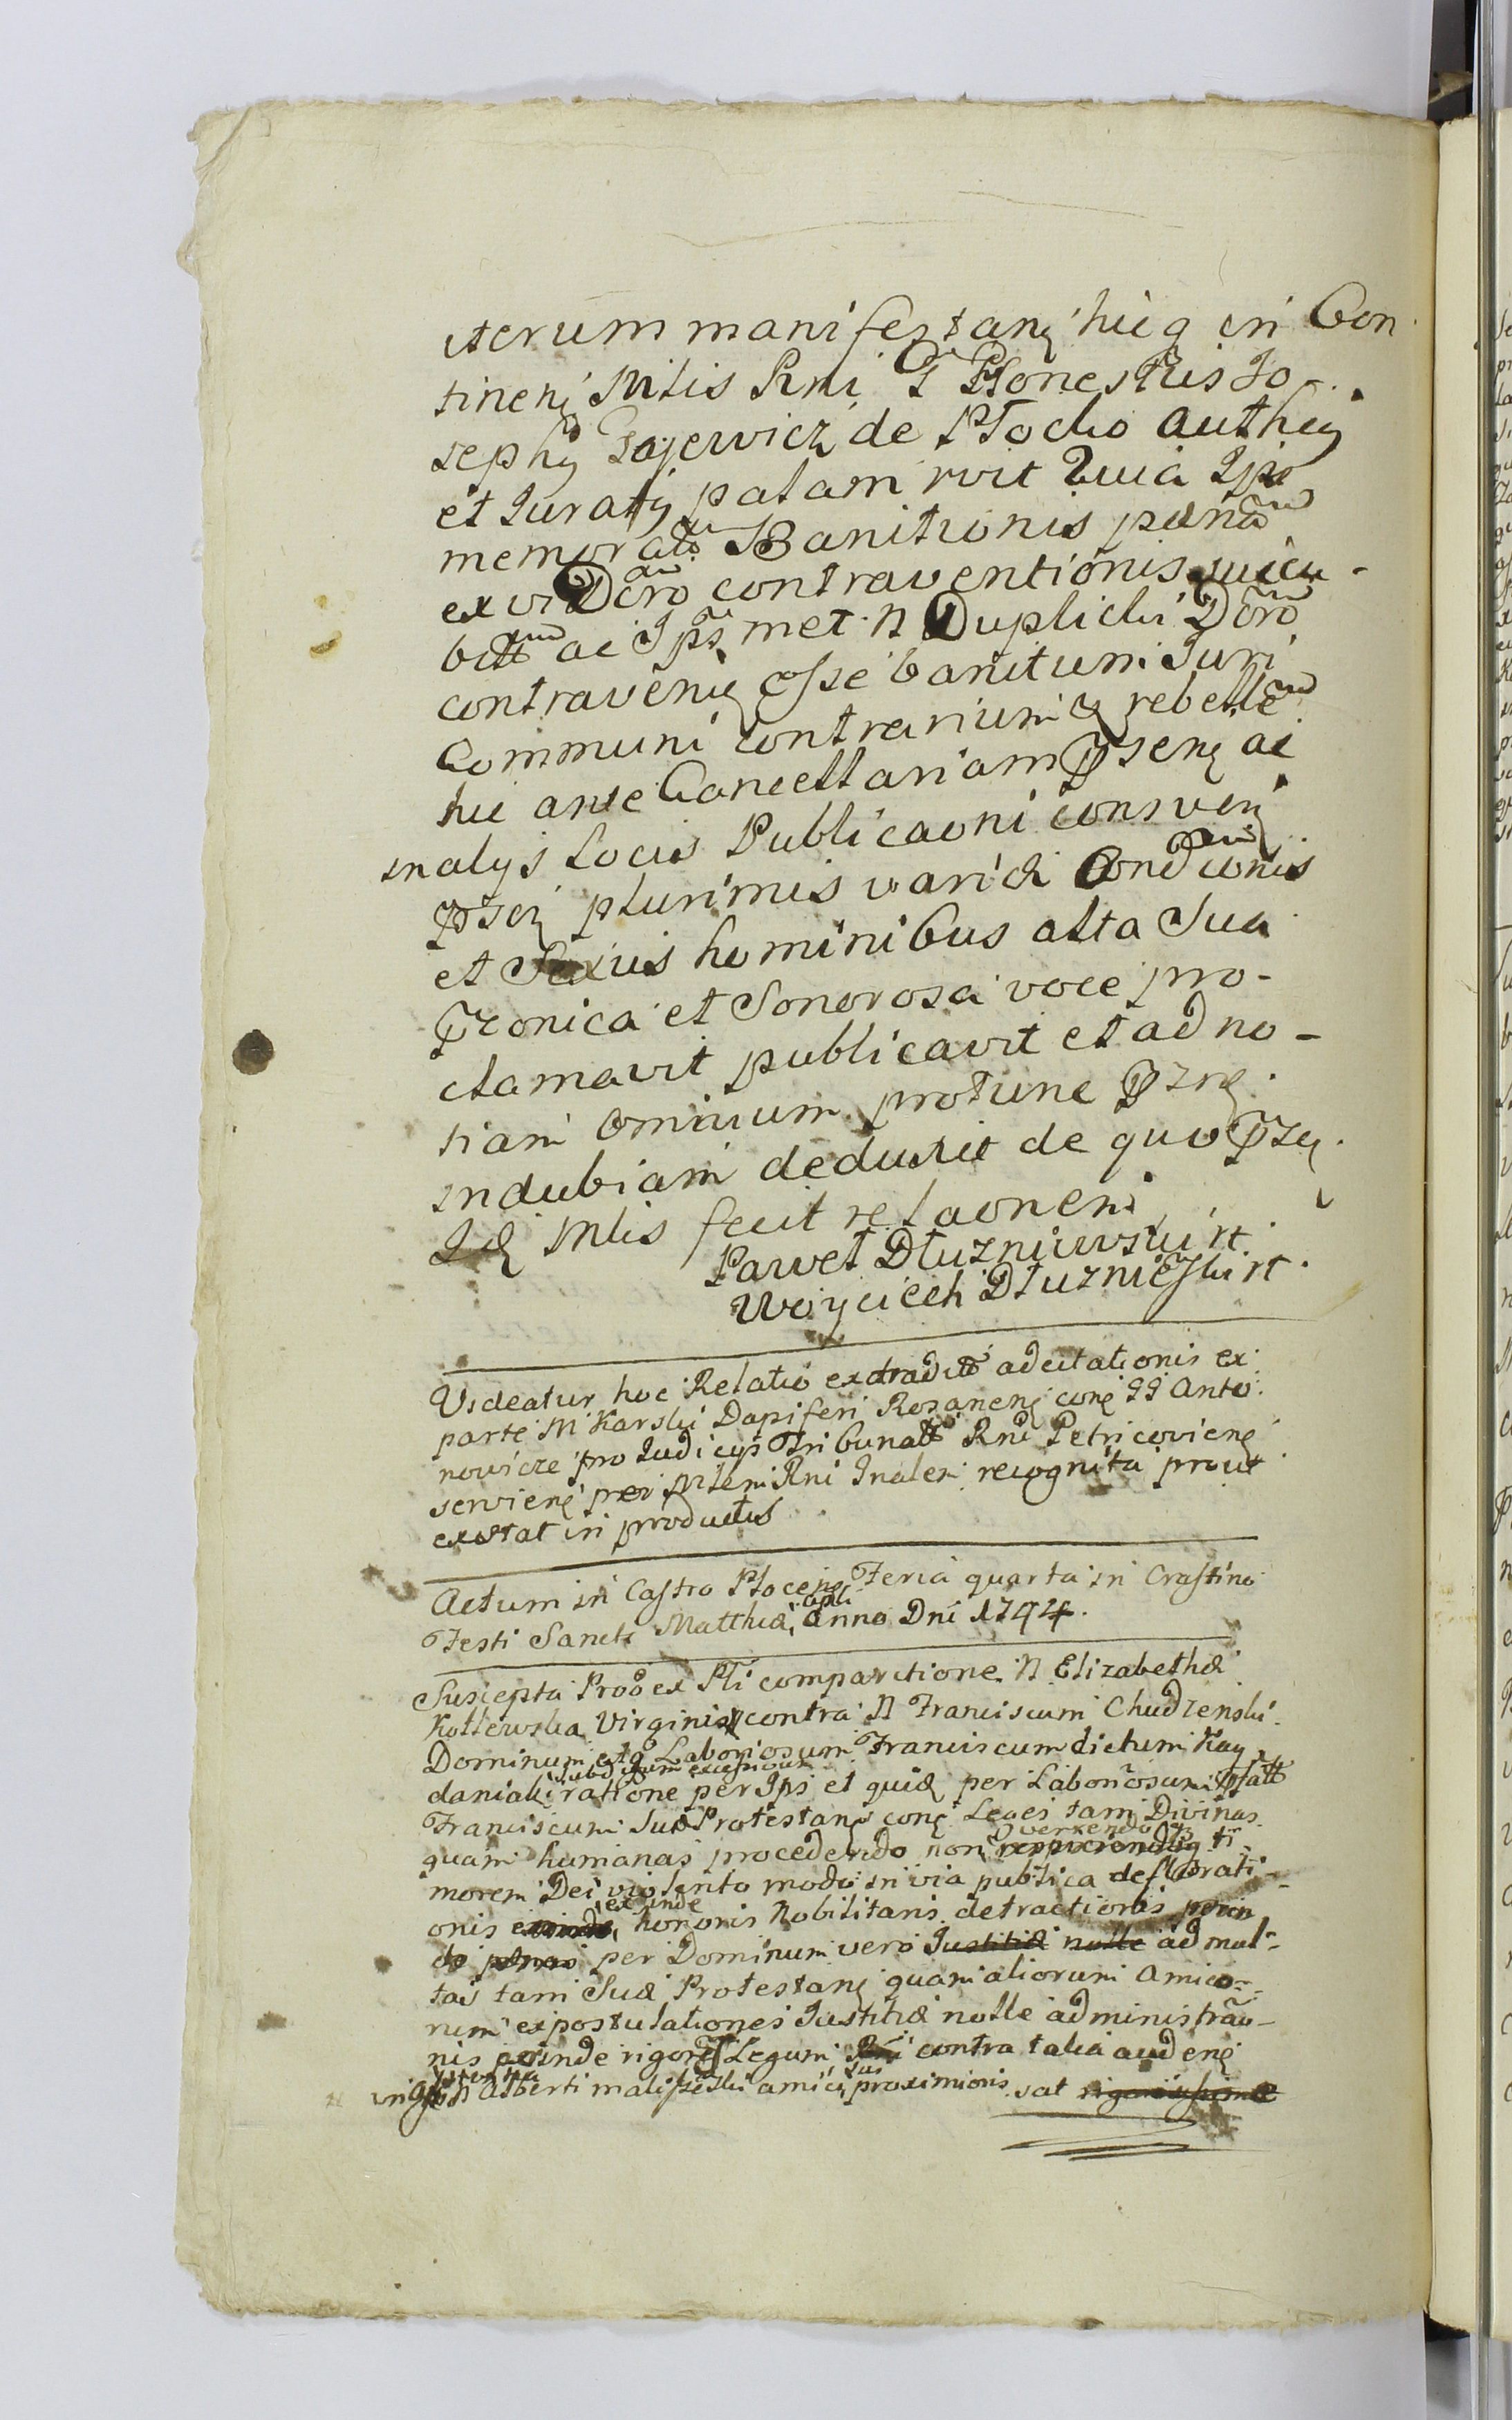 iterum manifestanṭ hicq in Con
tinenṭ Mtlis Rni T Honestus Jo
sephꝯ Gajewicz de Płocko authenꝯ
et Juratꝯ palam rvit Quia Ipse
memorato Banitionis pænã
ex vi Dcro contraventionis succu-
bitt ac Ips met N Duplicki Dcro
contravenien esse banitum Juri
Communi contrarium & rebellẽ
hic ante Cancellariam Psenꝭ ac
in alys Locis Publicaoni consvenꝭ
Psenꝭ plurimis variæ Condiconis
et Sexus hominibus alta Sua
Tronica et Sonorosa voce pro-
clamavit publicavit et ad no-
tiam omnium protunc Psnꝭ
indubiam deduxit de quo Psenꝭ
Idꝭ Mtlis fecit relaonem
Paweł Dłuzniewski rt
Woyciech Dłuznieski rt
Videatur hoc Relatio extraditt adcitationis ex
parte M Karski Dapiferi Rozanenꝭ conꝭ GG Anto
nowicze pro Judicys Tribunall Rni Petricovienꝭ
servienꝭ per Mtlem Rni Gnalem recognita prout
exstat in productis
Actum in Castro Plocenꝭ Feria quarta in Crastino
Festi Sancti Matthiæ Apli Anno Dni 1744.
Suscepta Proo ex Pli comparitione N Elizabethæ
Kotlewska Virginis contra N Franciscum Chudzenski
Dominum atq Laboriosum Franciscum dictum Kay
daniak subditum ratione per Ips et quidꝭ per Laboriosum Pfatt
Franciscum Suæ Protestanꝭ conꝭ Leges tam Divinas
quam humanas procedendo non verendo q ti
morem Dei violento modo in via publica deflorati-
onis exinde honoris Nobilitaris detractionis
per Dominum vero Justitiæ nolle ad mul-
tas tam Suæ Protestanꝭ quam aliorum Amico-
rum expostulationes Justitiæ nolle administrão-
nis proinde rigores Legum contra talia audenꝭ
in N Alberti amici sui proximioris sat